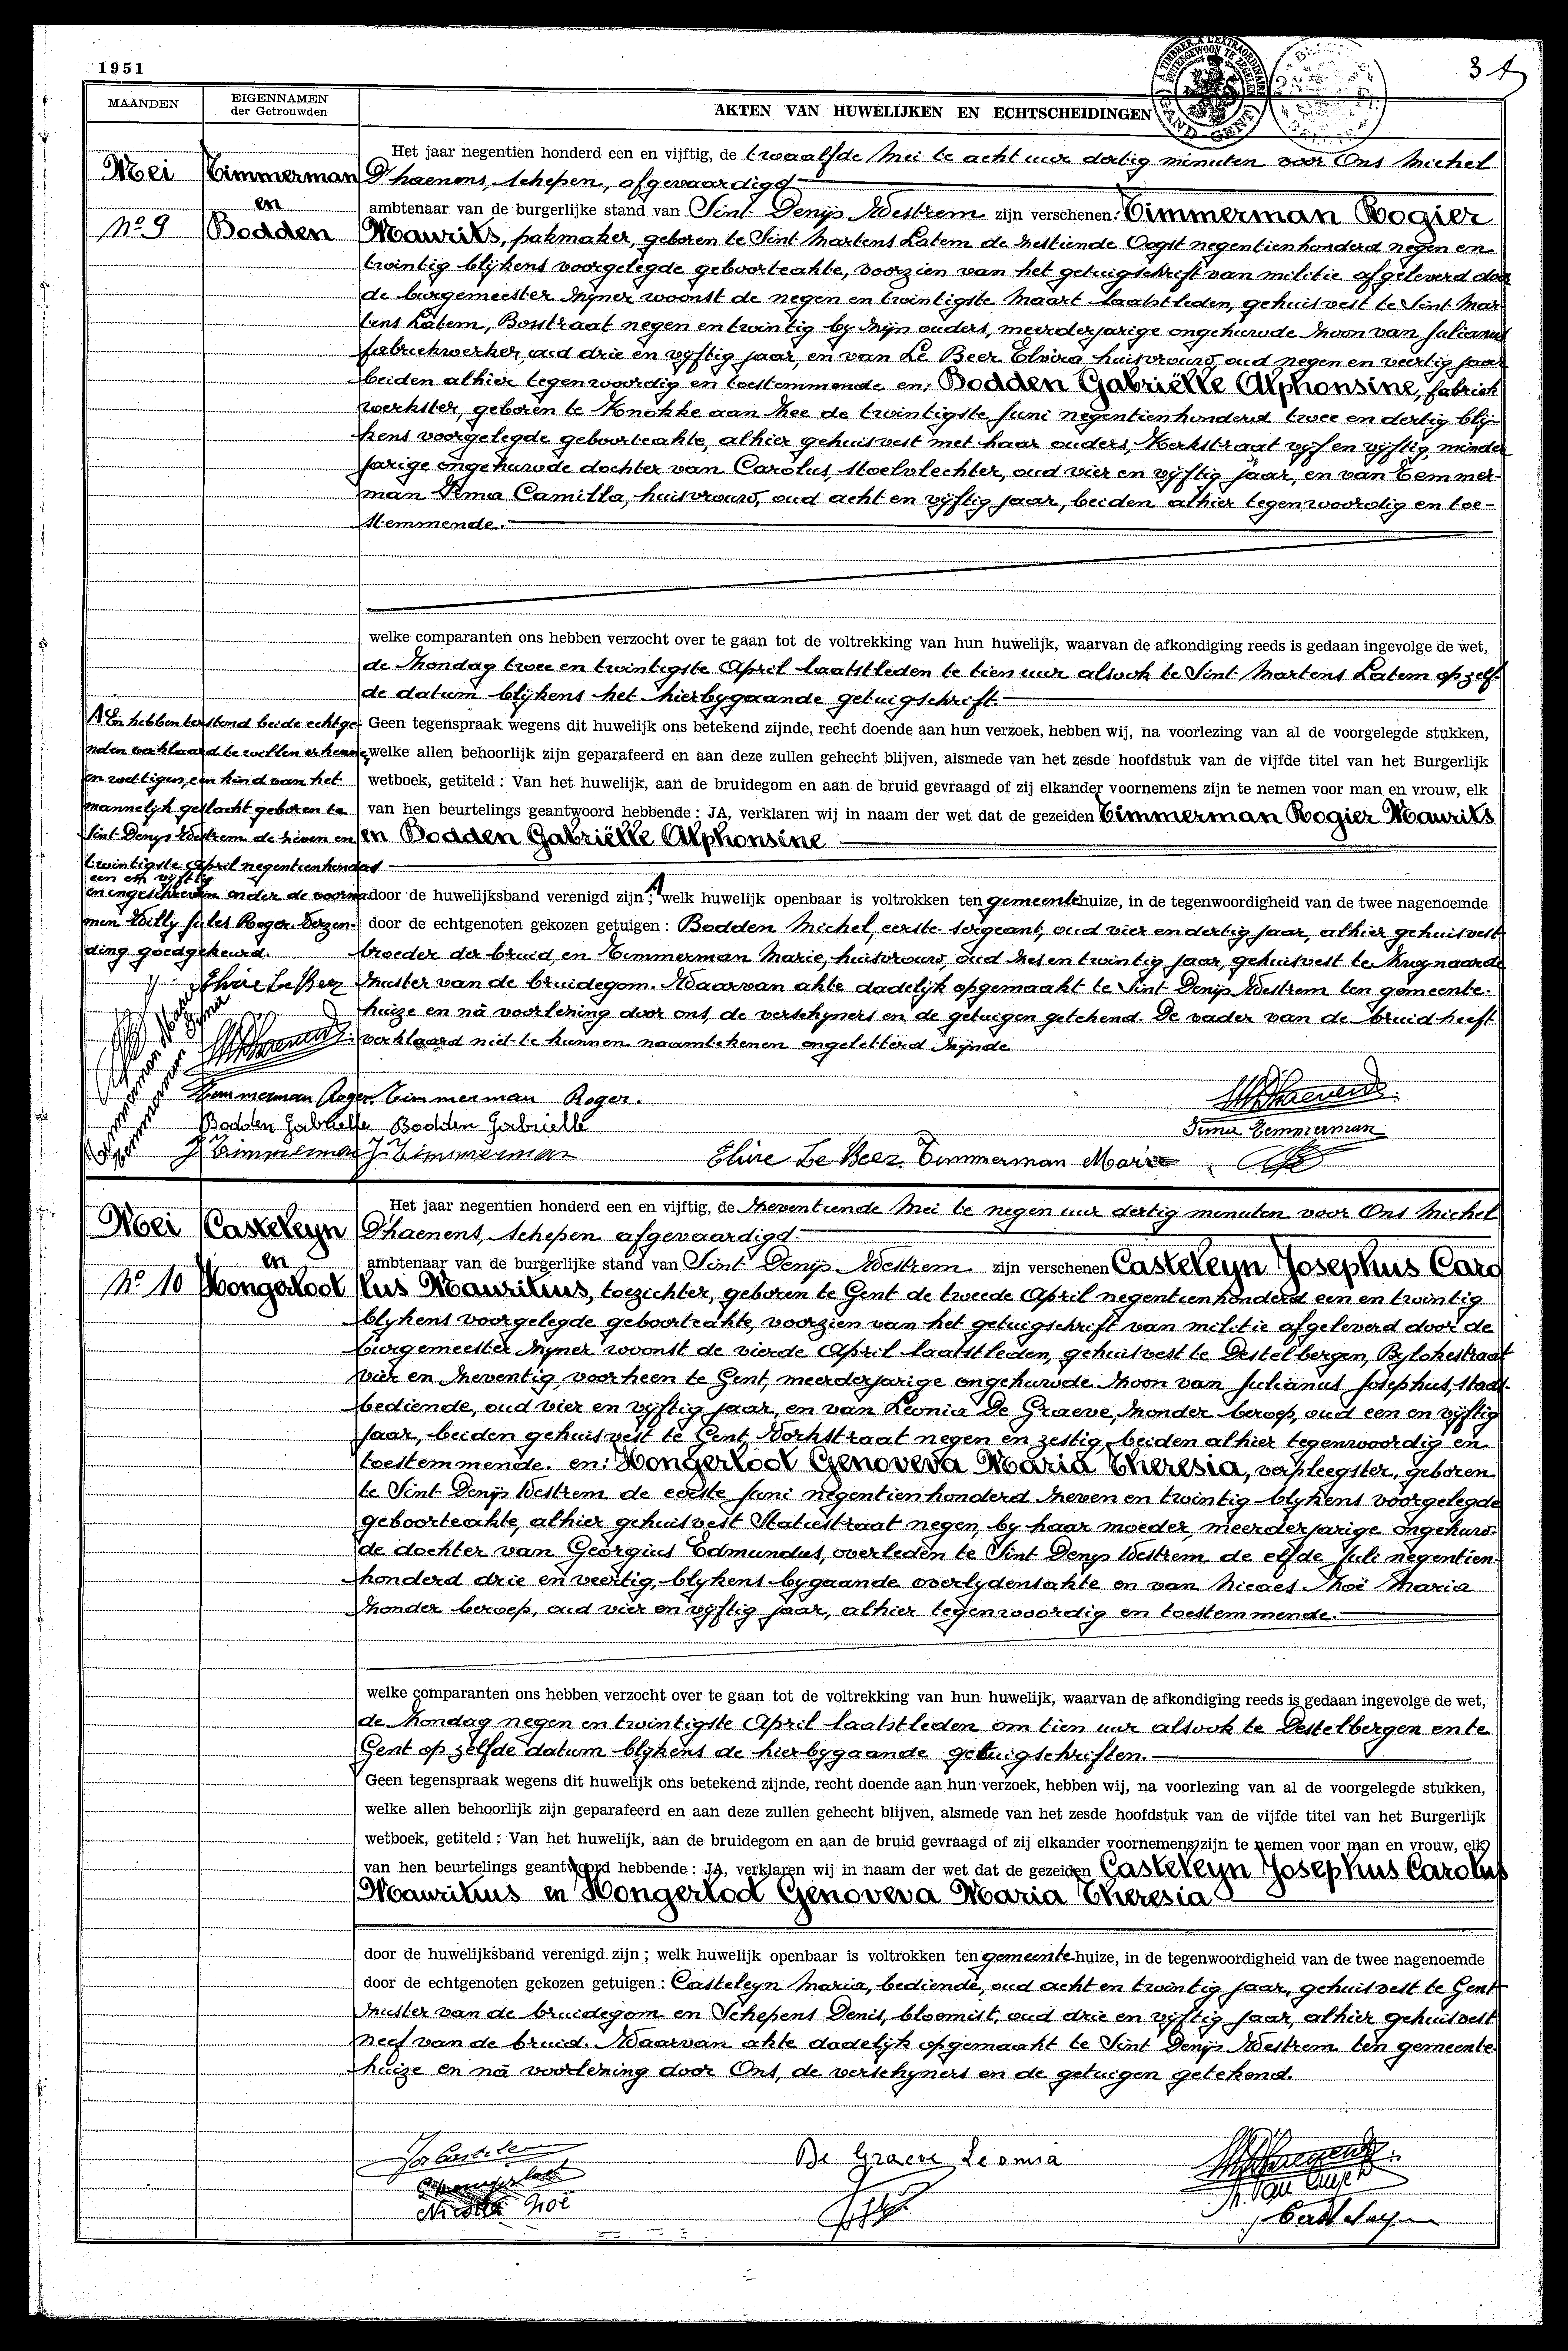 1951
3
MAANDEN
EIGENNAMEN
der Getrouwden
AKTEN VAN HUWELIJKEN EN ECHTSCHEIDINGEN
Mei
No 9
Timmerman
en
Bodden
Het jaar negentien honderd een en vijftig, de twaalfde Mei te acht uur dertig minuten voor Ons Michel
D'haenens, schepen, afgevaardigd
ambtenaar van de burgerlijke stand van Sint Denijs Westrem zijn verschenen: Timmerman Rogier
Maurits, pakmaker, geboren te Sint Martens Latem de zestiende Oogst negentienhonderd negen en
twintig blijkens voorgelegde geboorteakte, voorzien van het getuigschrift van militie afgeleverd door
de burgemeester zijner woonst de negen en twintigste Maart laatstleden, gehuisvest te Sint Mar
tens Latem, Bosstraat negen en twintig by zijn ouders, meerderjarige ongehuwde zoon van Julianus
fabriekwerker, oud drie en vijftig jaar, en van Le Beer Elvira huisvrouw, oud negen en veertig jaar
beiden alhier tegenwoordig en toestemmende en: Bodden Gabriëlle Alphonsine, fabriek
werkster, geboren te Knokke aan Zee de twintigste Juni negentienhonderd twee en dertig blij-
kens voorgelegde geboorteakte, alhier gehuisvest met haar ouders, Kerkstraat vijf en vijftig, minder
jarige ongehuwde dochter van Carolus, stoelvlechter, oud vier en vijftig jaar, en van Temmer-
man Irma Camilla, huisvrouw, oud acht en vijftig jaar, beiden alhier tegenwoordig en toe-
stemmende.
welke comparanten ons hebben verzocht over te gaan tot de voltrekking van hun huwelijk, waarvan de afkondiging reeds is gedaan ingevolge de wet,
de Zondag twee en twintigste April laatstleden te tien uur alsook te Sint Martens Latem op zelf-
de datum blijkens het hierbygaande getuigschrift.
Geen tegenspraak wegens dit huwelijk ons betekend zijnde, recht doende aan hun verzoek, hebben wij, na voorlezing van al de voorgelegde stukken,
welke allen behoorlijk zijn geparafeerd en aan deze zullen gehecht blijven, alsmede van het zesde hoofdstuk van de vijfde titel van het Burgerlijk
wetboek, getiteld : Van het huwelijk, aan de bruidegom en aan de bruid gevraagd of zij elkander voornemens zijn te nemen voor man en vrouw, elk
van hen beurtelings geantwoord hebbende : JA, verklaren wij in naam der wet dat de gezeiden Timmerman Rogier Maurits
en Bodden Gabriëlle Alphonsine
door de huwelijksband verenigd zijn A; welk huwelijk openbaar is voltrokken ten gemeentehuize, in de tegenwoordigheid van de twee nagenoemde
door de echtgenoten gekozen getuigen : Bodden Michel, eerste sergeant, oud vier en dertig jaar, alhier gehuisvest
broeder der bruid, en Timmerman Marie, huisvrouw, oud zes en twintig jaar, gehuisvest te Zwynaarde
zuster van de bruidegom. Waarvan akte dadelijk opgemaakt te Sint Denijs Westrem ten gemeente-
huize en na voorlezing door ons, de verschijners en de getuigen getekend. De vader van de bruid heeft
verklaard niet te kunnen naamtekenen ongeletterd zijnde
A En hebben terstond beide echtge-
noten verklaard te willen erkennen
en wettigen, een kind van het
mannelijk geslacht geboren te
Sint Denys Westrem de zeven en
twintigste April negentienhonderd
een en vijftig
en ingeschreven onder de voorna-
men Willy Jules Roger. Verzen-
ding goedgekeurd.
Elvire Le Beer
Timmerman Roger
Bodden Gabrielle
J Timmerman
Timmerman Roger.
Bodden Gabrielle
J Timmerman
Elvire Le Beer Timmerman Marie
Irma Temmerman
Mei
No 10
Casteleyn
en
Hongerloot
Het jaar negentien honderd een en vijftig, de zeventiende Mei te negen uur dertig minuten voor Ons Michel
D'haenens, schepen afgevaardigd
ambtenaar van de burgerlijke stand van Sint Denijs Westrem zijn verschenen Casteleyn Josephus Caro
lus Mauritius, toezichter, geboren te Gent de tweede April negentienhonderd een en twintig
blykens voorgelegde geboorteakte, voorzien van het getuigschrift van militie afgeleverd door de
burgemeester zijner woonst de vierde April laatstleden, gehuisvest te Destelbergen, Bylokestraat
vier en zeventig, voorheen te Gent, meerderjarige ongehuwde zoon van Julianus Josephus, stads-
bediende, oud vier en vijftig jaar, en van Leonia De Graeve, zonder beroep, oud een en vijftig
jaar, beiden gehuisvest te Gent, Vorkstraat negen en zestig, beiden alhier tegenwoordig en
toestemmende. en: Hongerloot Genoveva Maria Theresia, verpleegster, geboren
te Sint Denijs Westrem de eerste Juni negentienhonderd zeven en twintig blykens voorgelegde
geboorteakte, alhier gehuisvest Statiestraat negen, by haar moeder, meerderjarige ongehuw-
de dochter van Georgius Edmundus, overleden te Sint Denys Westrem de elfde Juli negentien-
honderd drie en veertig, blykens bygaande overlydensakte en van Nicaes Zoë Maria
zonder beroep, oud vier en vijftig jaar, alhier tegenwoordig en toestemmende.
welke comparanten ons hebben verzocht over te gaan tot de voltrekking van hun huwelijk, waarvan de afkondiging reeds is gedaan ingevolge de wet,
de Zondag negen en twintigste April laatstleden om tien uur alsook te Destelbergen en te
Gent op zelfde datum blykens de hierbygaande getuigschriften.
Geen tegenspraak wegens dit huwelijk ons betekend zijnde, recht doende aan hun verzoek, hebben wij, na voorlezing van al de voorgelegde stukken,
welke allen behoorlijk zijn geparafeerd en aan deze zullen gehecht blijven, alsmede van het zesde hoofdstuk van de vijfde titel van het Burgerlijk
wetboek, getiteld : Van het huwelijk, aan de bruidegom en aan de bruid gevraagd of zij elkander voornemens zijn te nemen voor man en vrouw, elk
van hen beurtelings geantwoord hebbende : JA, verklaren wij in naam der wet dat de gezeiden Casteleyn Josephus Carolus
Mauritius en Hongerloot Genoveva Maria Theresia
door de huwelijksband verenigd zijn ; welk huwelijk openbaar is voltrokken ten gemeentehuize, in de tegenwoordigheid van de twee nagenoemde
door de echtgenoten gekozen getuigen : Casteleyn Maria, bediende, oud acht en twintig jaar, gehuisvest te Gent
zuster van de bruidegom en Schepens Denis, bloemist, oud drie en vijftig jaar, alhier gehuisvest
neef van de bruid. Waarvan akte dadelijk opgemaakt te Sint Denijs Westrem ten gemeente-
huize en na voorlezing door Ons, de verschyners en de getuigen getekend.
De Graeve Leonia
Zoë